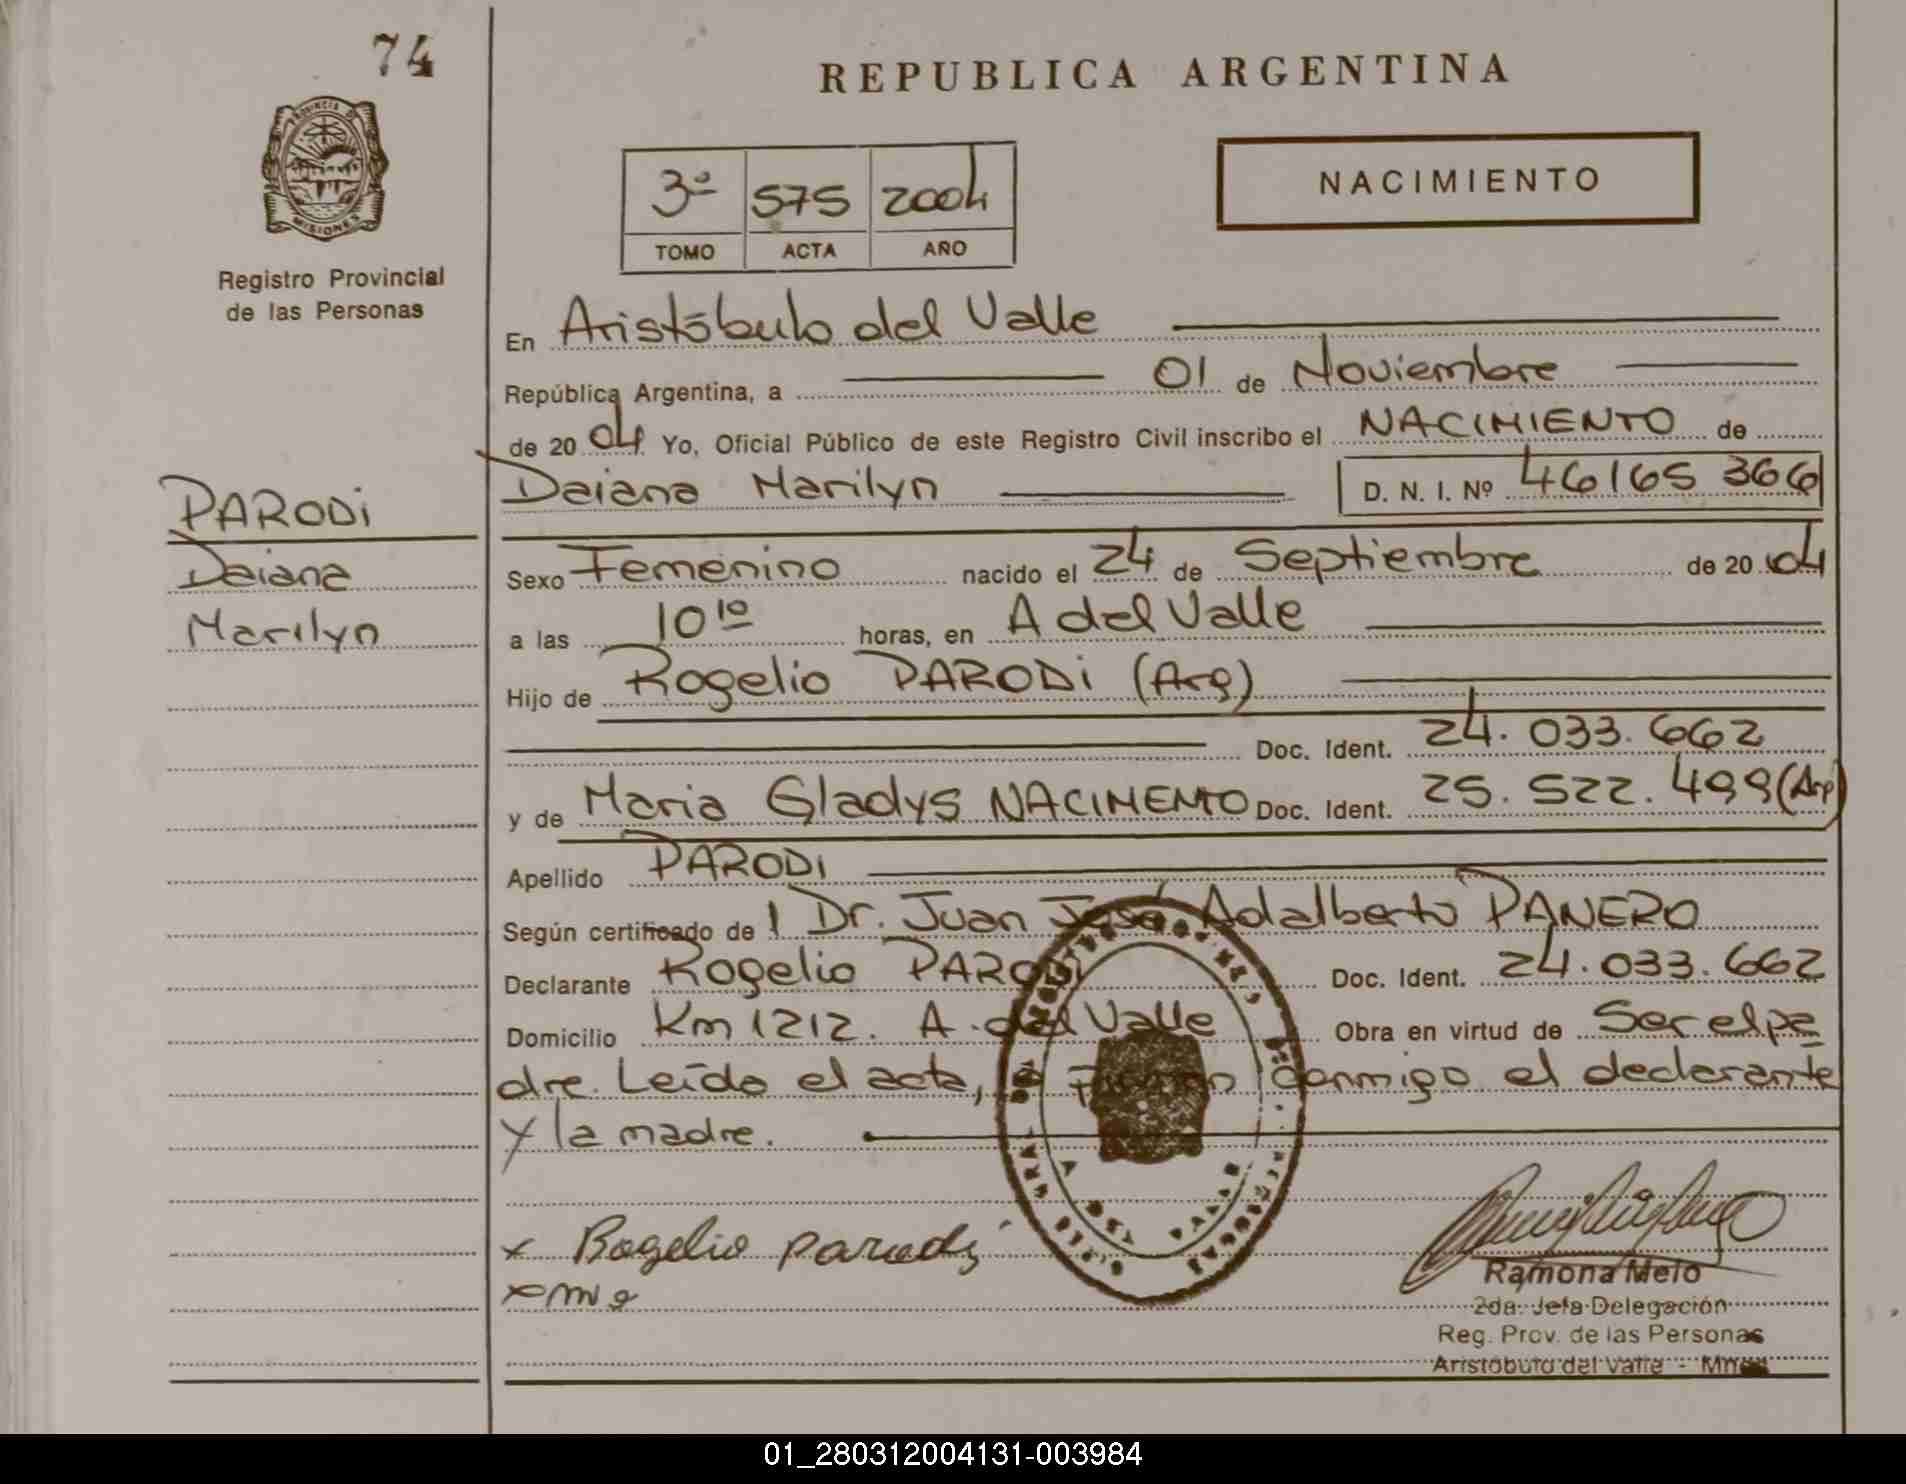 74
PROVINCIA DE
MISIONES
Registro Provincial
de las Personas
PARODI
Daiana
Marilyn
REPUBLICA ARGENTINA
3º 575 2004
TOMO ACTA AÑO
NACIMIENTO
En Aristóbulo del Valle
República Argentina, a 01 de Noviembre
de 2004 Yo, Oficial Público de este Registro Civil inscribo el NACIMIENTO de
Daiana Marilyn D. N. I. Nº 46165 366
Sexo Femenino nacido el 24 de Septiembre de 20 04
a las 10 10 horas, en A del Valle
Hijo de Rogelio PARODI (Arg)
Doc. Ident. 24.033.662
y de Maria Gladys NACIMENTO Doc. Ident. 25.522.499 (Arg)
Apellido PARODI
Según certificado de l Dr. Juan José Adalberto PANERO
Declarante Rogelio PARODI Doc. Ident. 24.033.662
Domicilio Km 1212. A. del Valle Obra en virtud de Ser el pa
dre. Leída el acta, la firman conmigo el declarante
y la madre.
x Rogelio parodi
Ramona Melo
2da. Jefa Delegación
Reg. Prov. de las Personas
Aristóbulo del Valle - Mnes
01_280312004131-003984